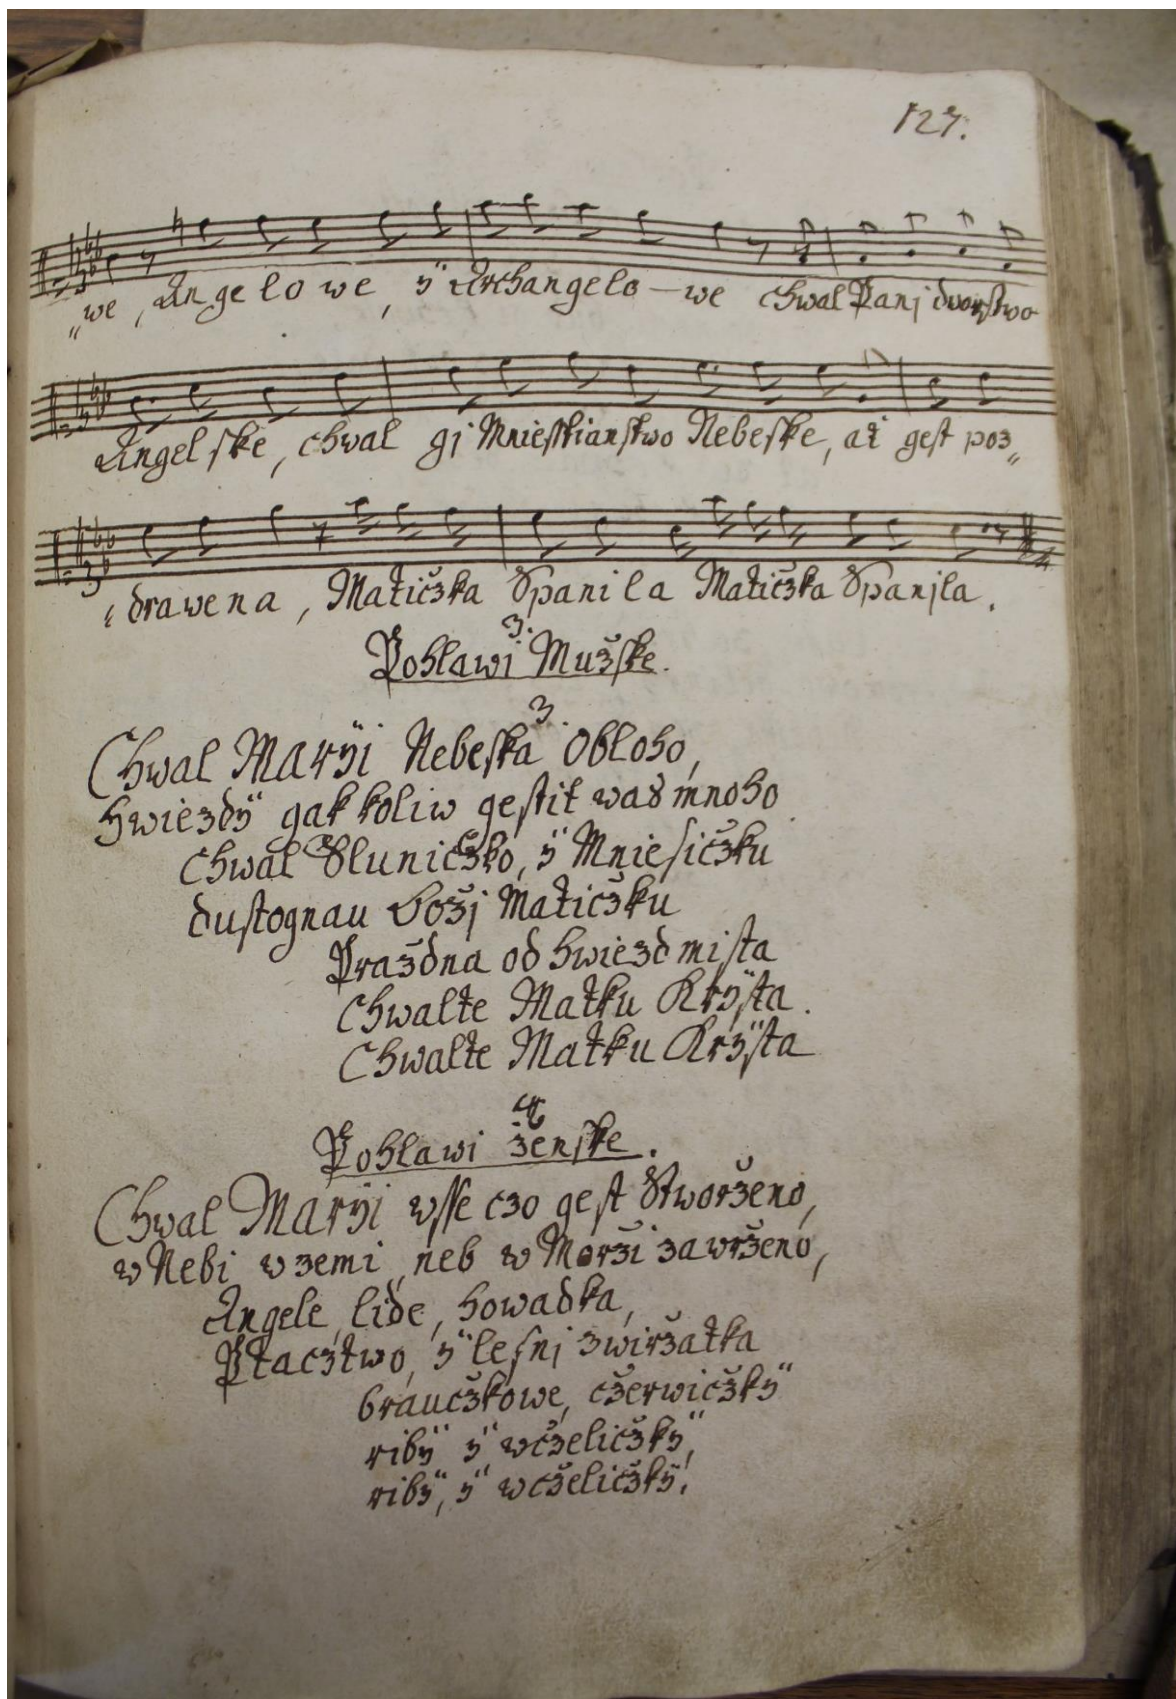 127.
„we, Angelowe, ÿ Archangelo–we chwal Panj dworstwo
Angelske, chwal gj Mniesstianstwo Nebeske, at gest poz„
„drawena, Maticżka Spanila Maticżka Spanjla.
3.
Pohlawi Mużske.
3.
Chwal Marÿi Nebeska Obloho,
hwiezdÿ gakkoliw gestit was mnoho
Chwal Slunicżko, ÿ Mniesicżku
dustognau Božj Maticżku
Prazdna od hwiezd mista
Chwalte Matku Krÿsta.
Chwalte Matku Krÿsta
4.
Pohlawi żenske.
Chwal Marÿi wsse czo gest Stworżeno,
w Nebi w zemi, neb w Morżi zawrżeno,
Angele, lide, howadka,
Ptacztwo, ÿ lesnj zwirżatka
braucżkowe, cżerwicżkÿ
ribÿ ÿ wcżelicżkÿ,
ribÿ, ÿ wcżelicżkÿ.